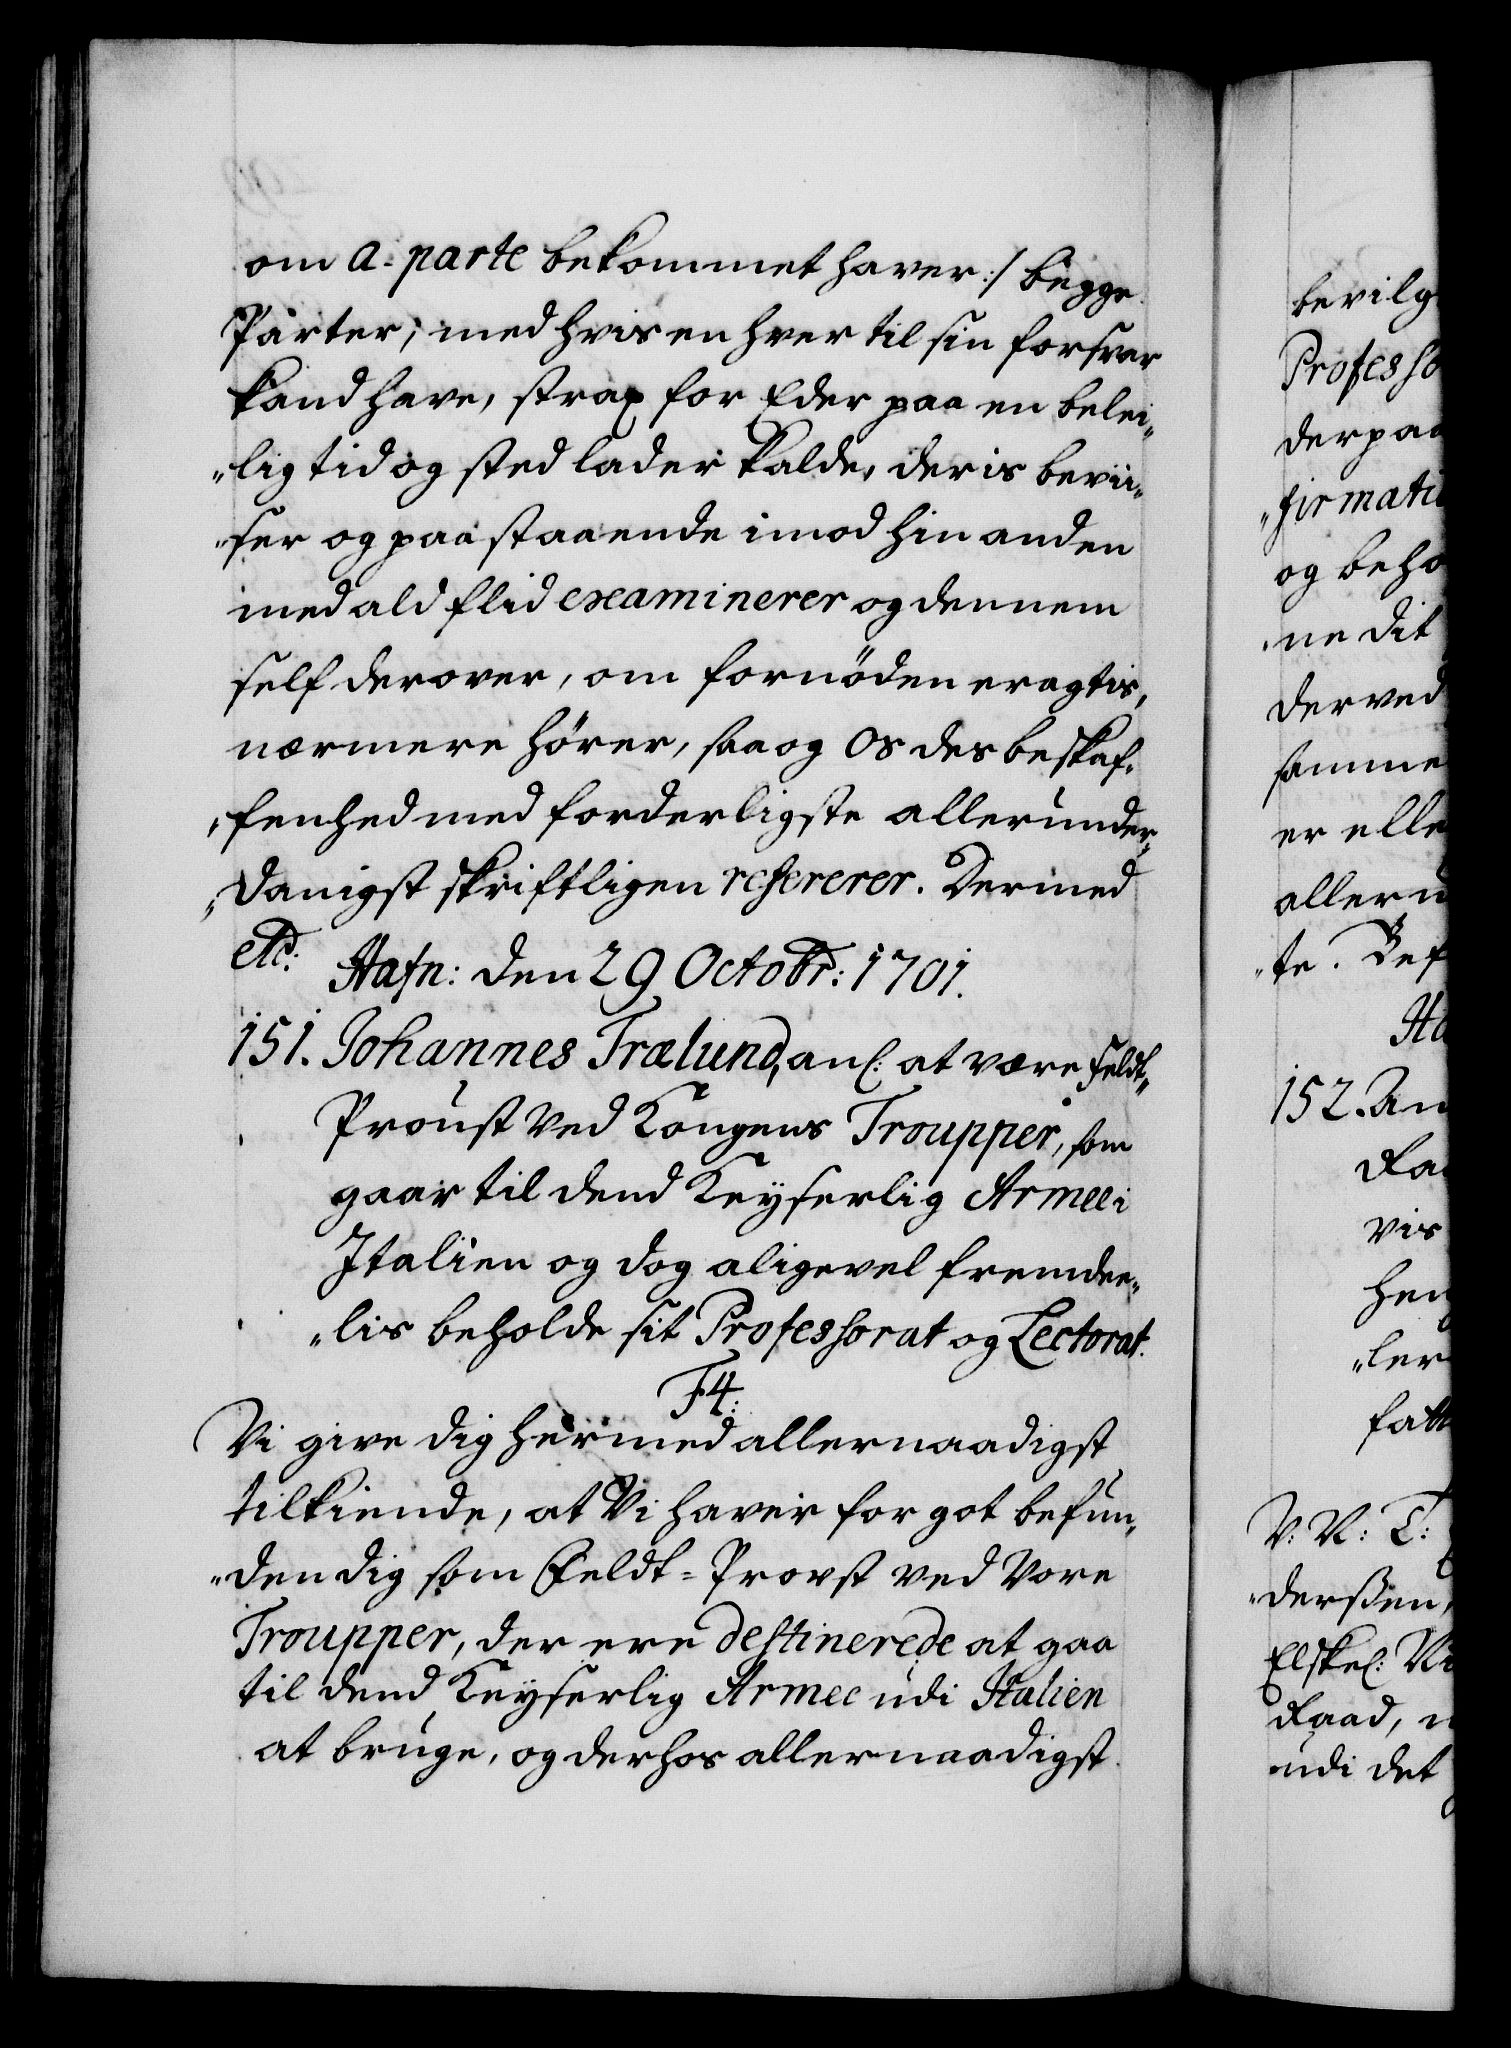 om a-parte bekommet haver :/ begge
Parter, med hvis en hver til sin forsvar
kand have, strax for Eder paa en belei„
„lig tid og sted lader kalde, deris bevii„
„ser og paastaaende imod hin anden
med ald flid examinerer og dennem
self derover, om fornöden eragtis,
nærmere hörer, saa og Os des beskaf„
„fenhed med forderligste allerunder„
„danigst skriftligen refererer. Dermed
etc: Hafn: den 29 Octobr: 1701.
151. Johannes Trælund, anl: at være Feldt„
Proust ved Kongens Troupper, som
gaar til dend Keyserlig Armee i
Italien og dog aligevel fremdee„
„lis beholde sit Professorat og Lectorat.
F4:
Vi give dig hermed allernaadigst
tilkiende, at Vi haver for got befun„
„den dig som Feldt-Provst ved Vore
Troupper, der ere destinerede at gaa
til dend Keyserlig Armee udi Italien
at bruge, og derhos allernaadigst
bevilg
Professo
derpaa
„firmati
og beho
„ne dit
derved
samme
er elle
alleru
„te. Bef
Ha
152. An
Raa
vis
hen
„ler
fatt
V: V: T:
„derssen,
Elskel: Vi
Raad,
udi det